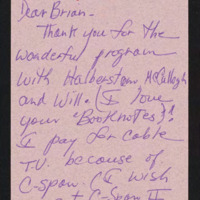 Dear Brian-
Thank you for the
wonderful program
with Halberstam McCullough
and Will. (I love
your "Booknotes)!
I pay for cable
T.V. because of
C-span. (I wish
C-Span II